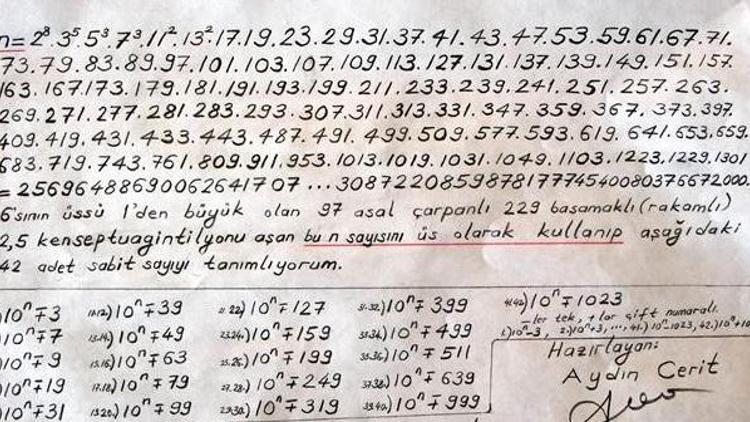 n=2⁸.3⁵.5³.7³.11².13².17.19.23.29.31.37.41.43.47.53.59.61.67.71.
73.79.83.89.97.101.103.107.109.113.127.131.137.139.149.151.157.
163.167.173.179.181.191.193.199.211.233.239.241.251.257.263.
269.271.277.281.283.293.307.311.313.331.347.359.367.373.397.
409.419.431.433.443.487.491.499.509.577.593.619.641.653.659.
683.719.743.761.809.911.953.1013.1019.1031.1049.1103.1223.1229.1301
=25696488690062641707...30872208598781777454008037667 2000.
6'sının üssü 1'den büyük olan 97 asal çarpanlı 229 basamaklı (rakamlı)
2,5 kenseptuagintilyonu aşan bu n sayısını üs olarak kullanıp aşağıdaki
42 adet sabit sayıyı tanımlıyorum.
)10ⁿ∓3 11.12.)10ⁿ∓39 21.22.)10ⁿ∓127 31.32.)10ⁿ∓399 41.42.)10ⁿ∓1023
)10ⁿ∓7 13.14.)10ⁿ∓49 23.24.)10ⁿ∓159 33.34.)10ⁿ∓499 -ler tek, +lar çift numaralı.
1.)10ⁿ-3, 2.)10ⁿ+3, ..., 41.)10ⁿ-1023, 42.)10ⁿ+10
)10ⁿ∓9 15.16.)10ⁿ∓63 25.26.)10ⁿ∓199 35.36.)10ⁿ∓511 Hazırlayan:
)10ⁿ∓19 17.18.)10ⁿ∓79 27.28.)10ⁿ∓249 37.38.)10ⁿ∓639 Aydın Cerit
)10ⁿ∓31 19.20.)10ⁿ∓99 29.30.)10ⁿ∓319 39.40.)10ⁿ∓999